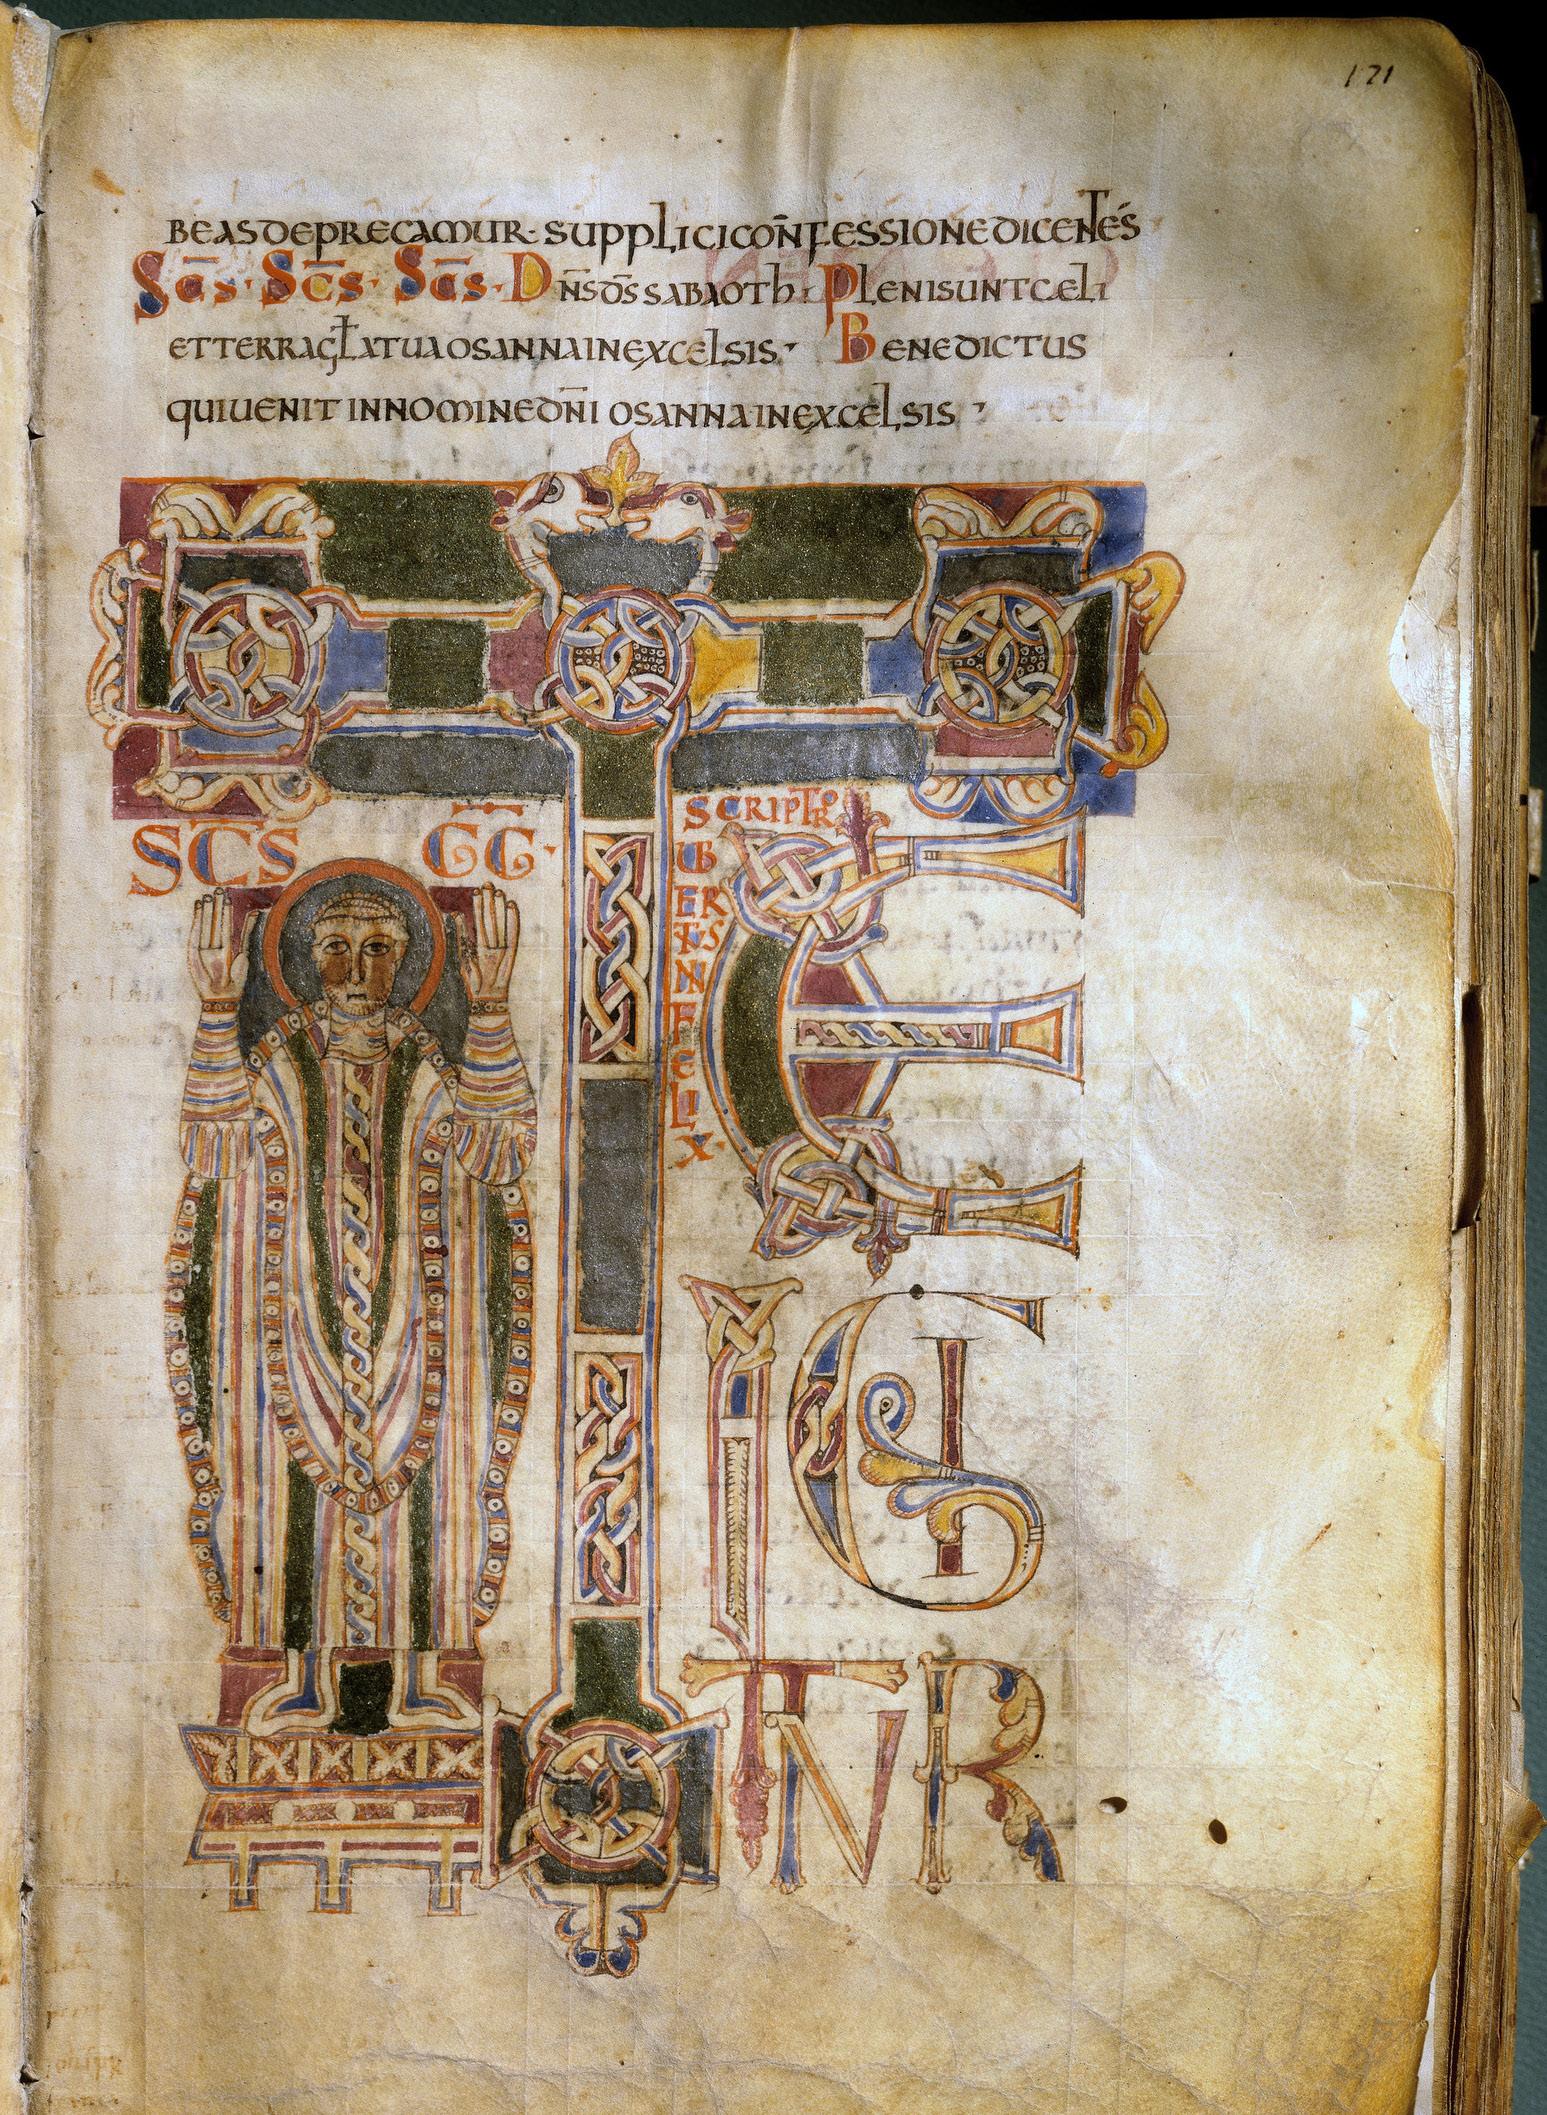 121
BEASDEPRECAMUR· SUPPLICICOÑFESSIONEDICENTES
SC̅S· SC̅S· SC̅S· DN̅SD̅SSABAOTH· PLENISUNTCELI
ETTERRAGL̅ATUAOSANNAINEXCELSIS· BENEDICTUS
QUIUENITINNOMINEDN̅I OSANNAINEXCELSIS
STS GG·
SCRIPTOR
UB
ER
TUS
N
F
E
LI
X·
TE
IGI
TUR